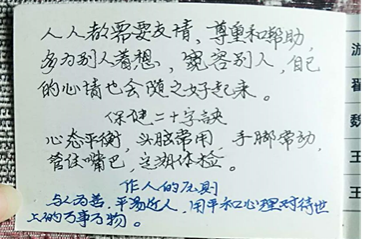 人人都需要友情，尊重和帮助，
多为别人着想，宽容别人，自己
的心情也会随之好起来。
保健二十字诀
心态平衡，头脑常用，手脚常动，
管住嘴巴，定期体检。
作人的原则
与人为善，平易近人，用平和心理对待世
上的万事万物。
游
翟
魏
王
王